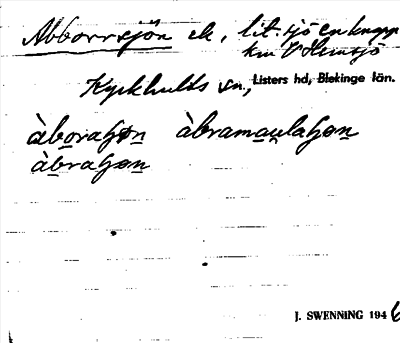 Abborrsjön ek, lit. sjö en knapp
km V Hemsjö
Kyrkhults sn, Listers hd, Blekinge län.
àboraʃɷn àbramau̯laʃɷn
àbraʃɷn
J. SWENNING 1946